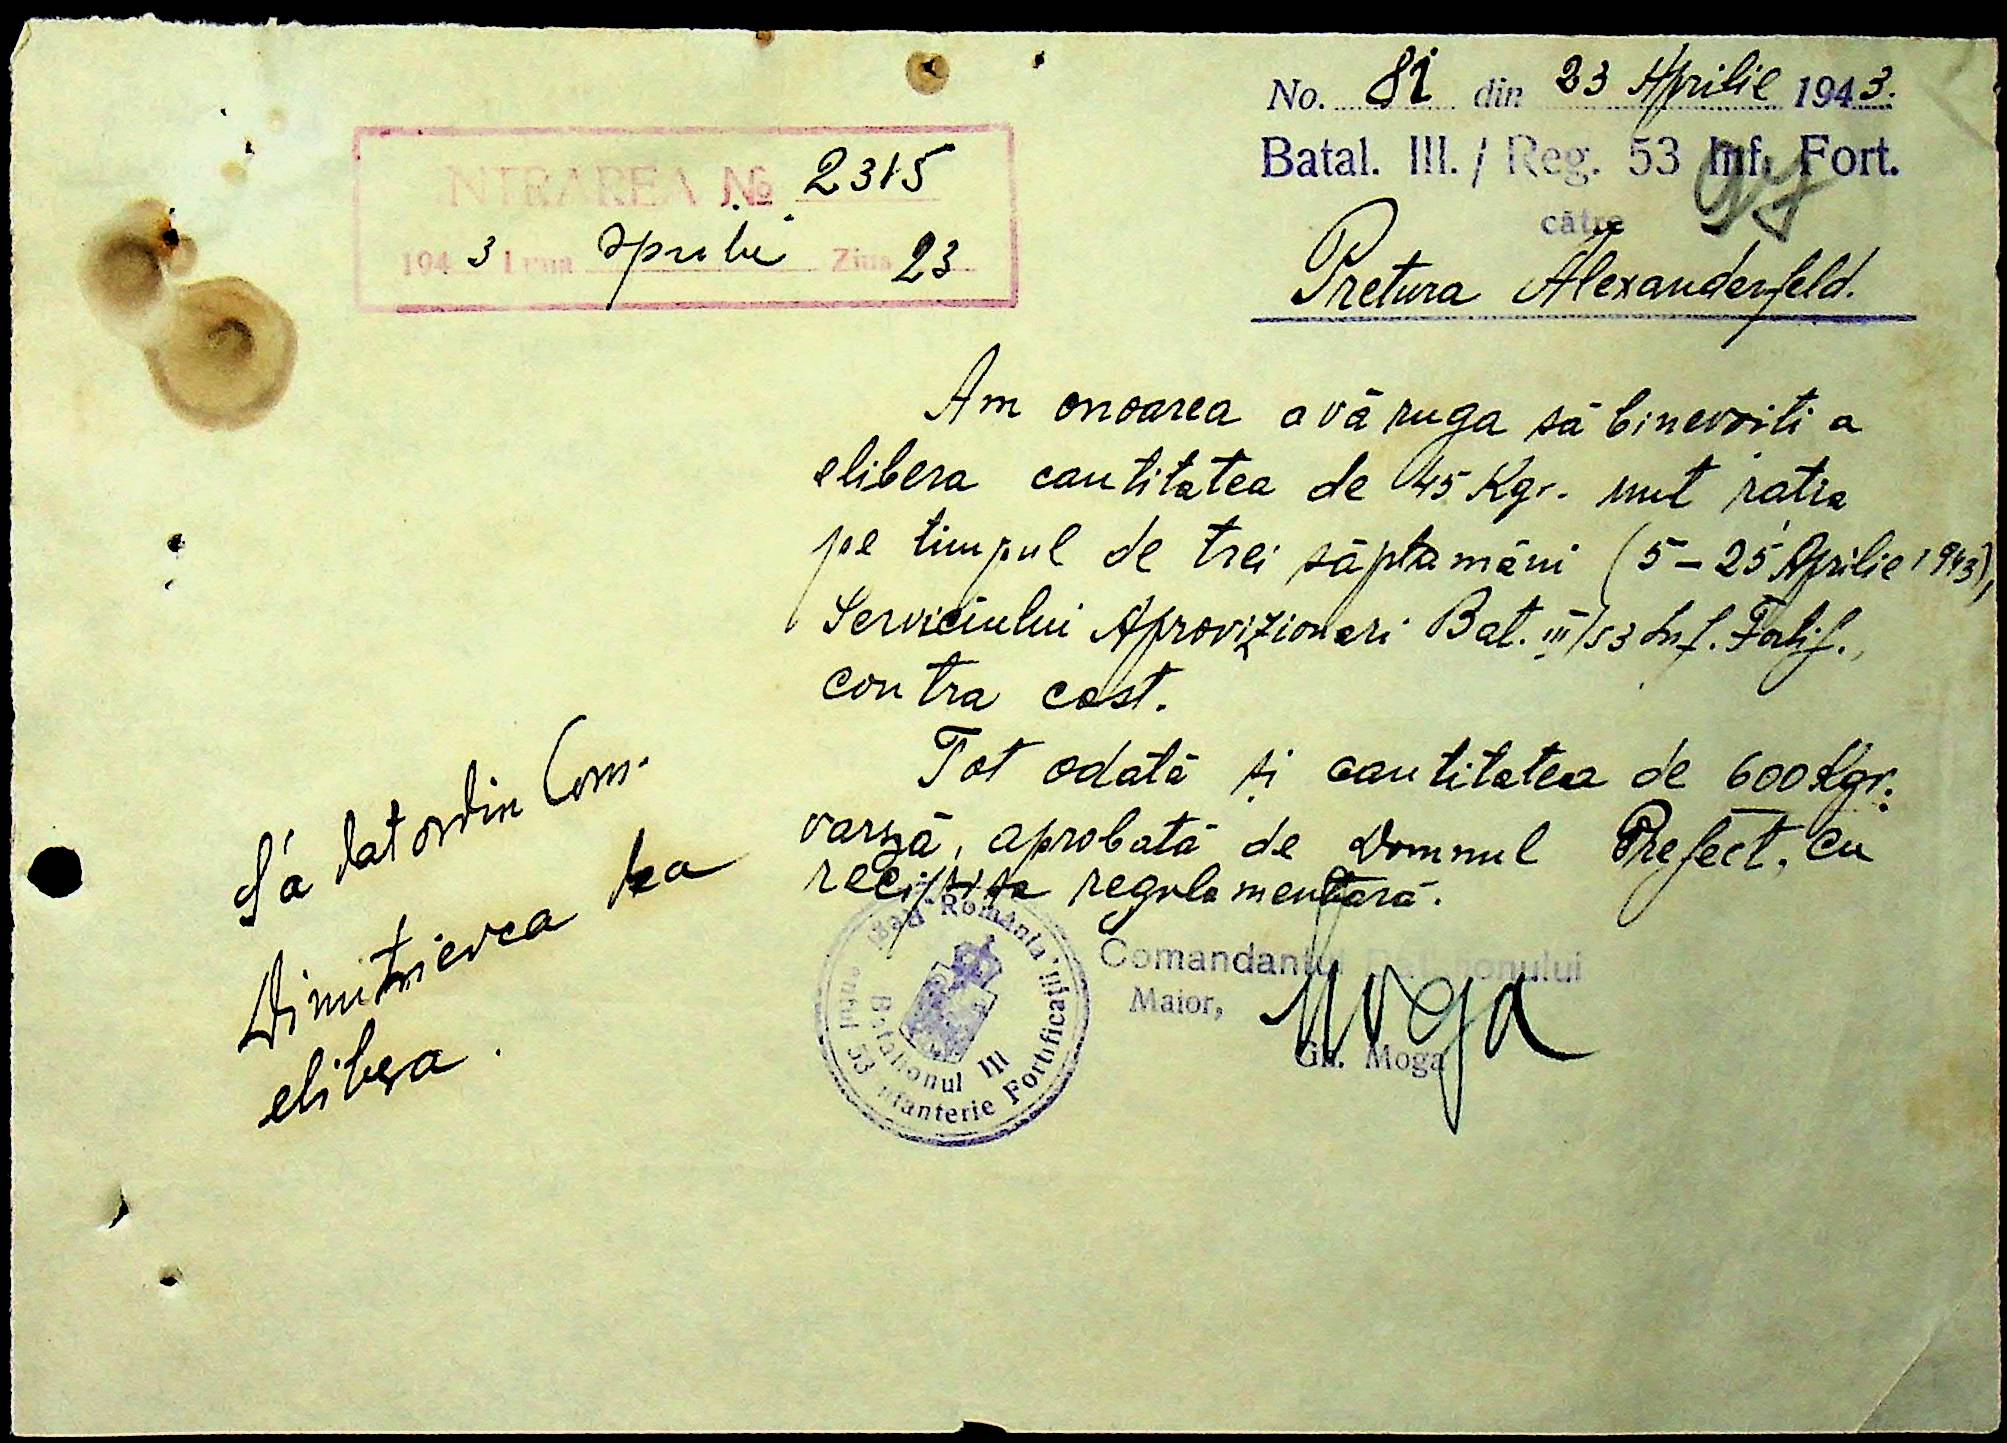 No. 81 din 23 Aprilie 1943.
Batal. III. / Reg. 53 Inf. Fort.
către
Pretura Alexanderfeld.
INTRAREA № 2315
1943 Luna aprilie Ziua 23
Am onoarea a vă ruga să binevoiti a
elibera cantitatea de 45 Kgr. unt ratia
pe timpul de trei săptamâni (5 – 25 Aprilie 1943),
Serviciului Aprovizionari Bat. III/53 Inf. Fortif.,
contra cost.
Tot odată și cantitatea de 600 Kgr.
varză, aprobată de Domnul Prefect, cu
recipisa regulamentară.
Comandantul Batalionului
Maior,
Moga
Gh. Moga
România
Batalionul III
53 Infanterie Fortificații
S'a dat ordin Com.
Dimitrievca sa
elibera.